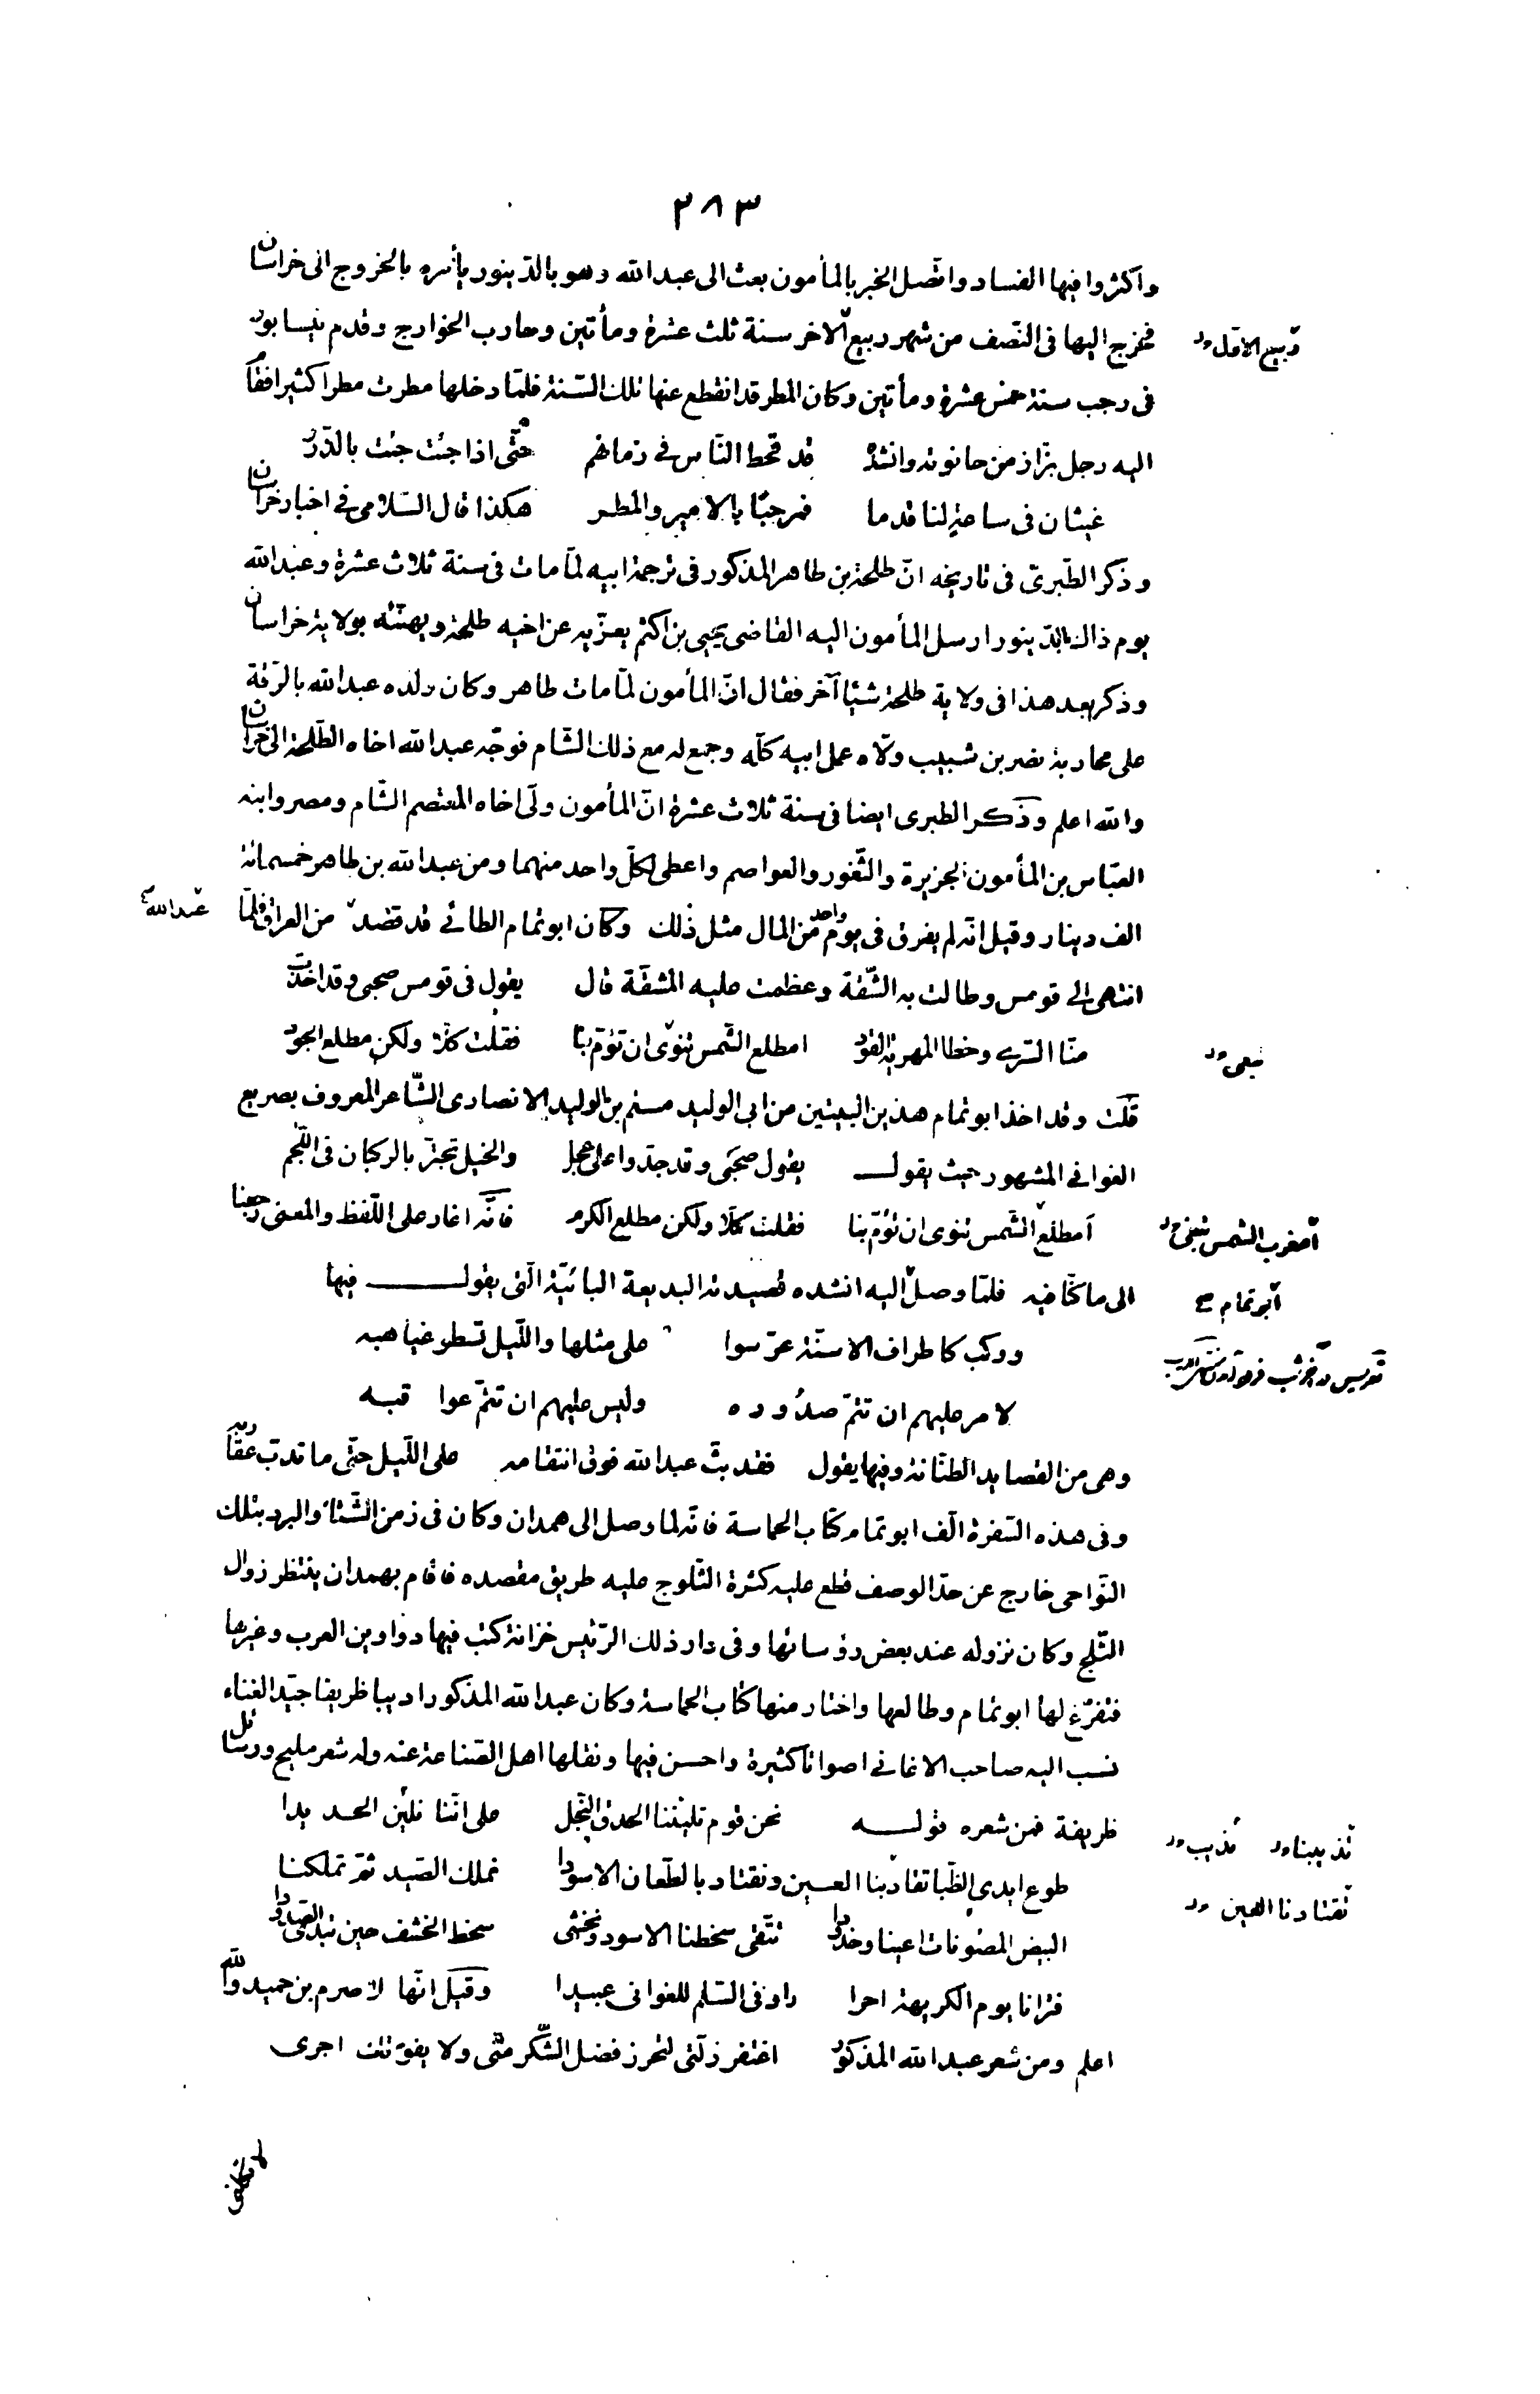 ٢٨٣
واكثروا فيها الفساد واتّصل الخبر بالمأمون بعث الى عبد الله وهو بالدّينور يأمره بالخروج الى خراسان
فخرج اليها فى النّصف من شهر ربيع الآخر سنة ثلث عشرة ومأتين وحارب الخوارج وقدم نيسابور
ربيع الاول
فى رجب سنة خمس عشرة ومأتين وكان المطر قد انقطع عنها تلك السّنة فلمّا دخلها مطرت مطرا كثيرا فقام
اليه رجل بزّاز من حانوته وانشده قد قحط النّاس فى زمانهم حتّى اذا جئت جئت بالدّرر
غيثان فى ساعة لنا قدما فمرحبًا بالامير والمطر هكذا قال السّلامى فى اخبار خراسان
وذكر الطّبرىّ فى تاريخه انّ طلحة بن طاهر المذكور فى ترجمة ابيه لمّا مات فى سنة ثلاث عشرة وعبد الله
يوم ذاك بالدّينور ارسل المأمون اليه القاضى يحيى بن اكثم يعزّيه عن اخيه طلحة ويهنّئه بولاية خراسان
وذكر بعد هذا فى ولاية طلحة شيئا آخر فقال انّ المأمون لمّا مات طاهر وكان ولده عبد الله بالرّقّة
على محاربة نصر بن شبيب ولّاه عمل ابيه كلّه وجمع له مع ذلك الشّام فوجّه عبد الله اخاه الطّلحة الى خراسان
والله اعلم وذكر الطبرى ايضا فى سنة ثلاث عشرة انّ المأمون ولّى اخاه المعتصم الشّام ومصر وابنه
العبّاس بن المأمون الجزيرة والثّغور والعواصم واعطى لكلّ واحد منهما ومن عبد الله بن طاهر خمسمائة
الف دينار وقيل انّه لم يفرق فى يوم واحد من المال مثل ذلك وكان ابو تمام الطائى قد قصد من العراق فلمّا
عبد الله
انتهى الى قومس وطالت به الشّقّة وعظمت عليه المشقّة قال يقول فى قومس صحبى وقد اخذت
منّا السّرى وخطا المهريّة القود امطلع الشّمس تنوى ان تؤمّ بنا فقلت كلّا ولكن مطلع الجود
تبغى
قلت وقد اخذ ابو تمام هذين البيتين من ابى الوليد مسلم بن الوليد الانصارى الشّاعر المعروف بصريع
الغوانى المشهور حيث يقول يقول صحبى وقد جدّوا على عجل والخيل تجترّ بالركبان فى اللّجم
أمطلع الشّمس تنوى ان تؤمّ بنا فقلت كلّا ولكن مطلع الكرم فانّه اغار على اللّفظ والمعنى رجعنا
أمغرب الشمس تبغى
الى ما كنّا فيه فلمّا وصل اليه انشده قصيدته البديعة البائيّة الّتى يقول فيها
ابو تمام
وركب كاطراف الاسنّة عرّسوا على مثلها واللّيل تسطو غياهبه
لامر عليهم ان تتمّ صدوره وليس عليهم ان تتمّ عواقبه
وهى من القصايد الطنّانة وفيها يقول فقد بثّ عبد الله فوق انتقامه على اللّيل حتّى ما تدبّ عقاربه
وفى هذه السّفرة الّف ابو تمام كتاب الحماسة فانّه لما وصل الى همدان وكان فى زمن الشّتاء والبرد بتلك
النّواحى خارج عن حدّ الوصف قطع عليه كثرة الثّلوج عليه طريق مقصده فاقام بهمدان ينتظر زوال
الثّلج وكان نزوله عند بعض رؤسائها وفى دار ذلك الرّئيس خزانة كتب فيها دواوين العرب وغيرها
فتفرّغ لها ابو تمام وطالعها واختار منها كتاب الحماسة وكان عبد الله المذكور اديبا ظريفا جيّد الغناء
نسب اليه صاحب الاغانى اصواتا كثيرة واحسن فيها ونقلها اهل الصّناعة عنه وله شعر مليح ورسائل
ظريفة فمن شعره قوله نحن قوم تليّننا الحدق النّجل على انّنا نليّن الحديدا
تذيبنا نذيب
طوع ايدى الظّبا تقادبنا العين ونقتاد بالطّعان الاسودا نملك الصّيد ثمّ تملكنا
تقتادنا العين
البيض المصونات اعينا وخدودا تتّقى سخطنا الاسود ونخشى سخط الخشف حين تبدى الصّدودا
فترانا يوم الكريهة احرارا وفى السّلم للغوانى عبيدا وقيل انّها لاصرم بن حميد والله
اعلم ومن شعر عبد الله المذكور اغتفر زلّتى لتحرز فضل الشّكر منّى ولا يفوتك اجرى